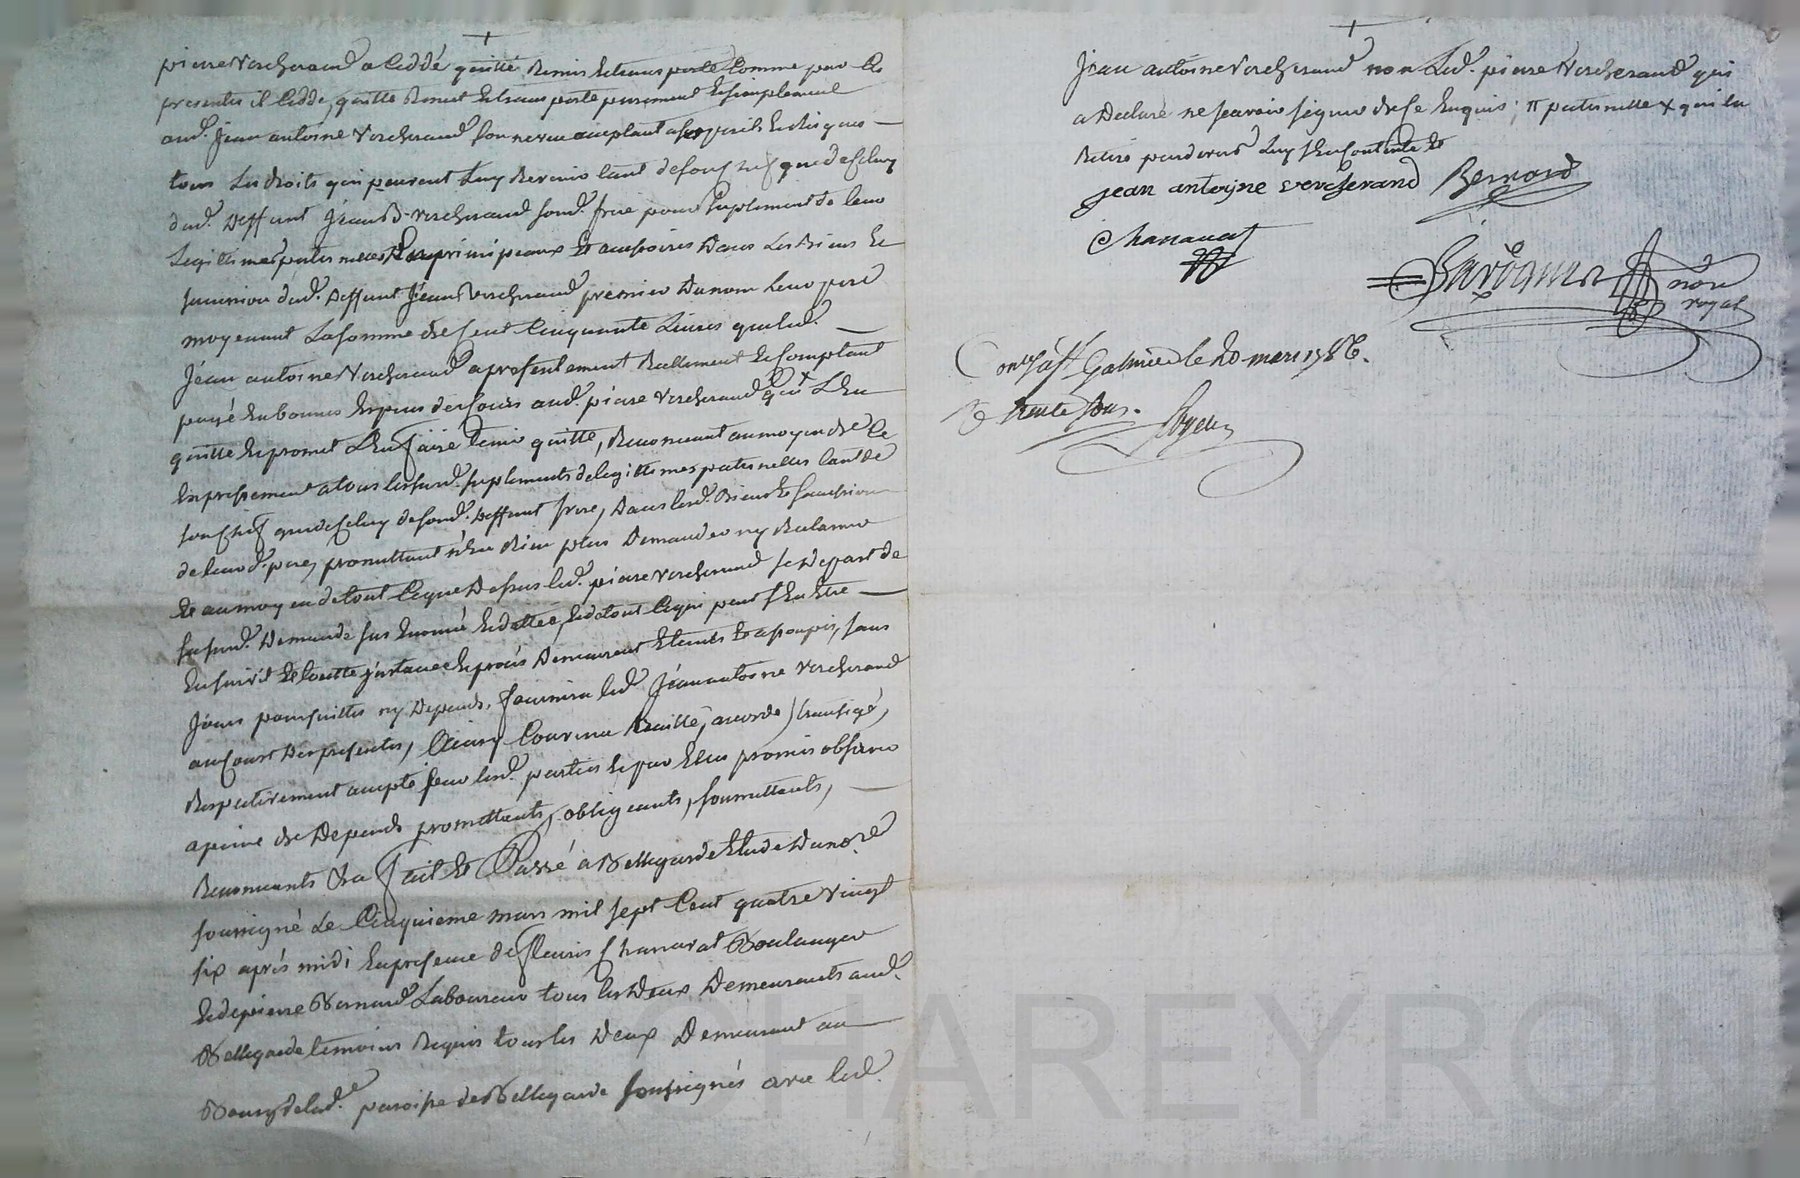 pierre Vercherand a Ceddé quitté Remis et transporté Comme par Ces
presentes il Cedde, quitte Remet et transporte purement et simplement
aud. Jean antoine Vercherand son neveu acceptant a ses perils et risques
tous Les droits qui peuvent Luy Revenir tant de son chef que de celuy
dud. Deffunt Jean B. Vercherand sond. frere pour suplement de leur
Legittimes paternelles En principaux et accessoires Dans Les Biens et
succession dud. Deffunt Jean Vercherand premier Du nom Leur pere
moyenant La somme de Cent Cinquante Livres que led.
Jean antoine Vercherand a presentement Réellement et Comptant
payé En bonnes Especes de Cours aud. pierre Vercherand qui L'En
quitte Et promet L'En faire tenir quitte, Renonceant au moyen de Ce
Expressement a tous les susd. suplements de legittimes paternelles tant de
son chef que de Celuy de sond. Deffunt frere, Dans lesd. Biens et succession
de leurd. pere, promettant n'En Rien plus Demander ny Reclamer
Et au moyen de tout Ce que Dessus led. pierre Vercherand se Depart de
sa susd. Demande sus Enoncée Et dattée, Et de tout Ce qui peut s'En Etre
Ensuivit Et toutte instance Et procés Demeurent Eteints Et assoupis, sans
Jcelles poursuittes ny Depends, fournira led. Jean antoine Vercherand
aucours Des presentes, Ainsy Convenu Traitté, accordé, transigé,
Respectivement accepté par lesd. parties Et par Elles promis observer
a peine de Depends promettants, obligeants, soumettants,
Renonceants &a fait Et Passé à Bellegarde Etude Du no.re
soussigné Le Cinquieme mars mil sept Cent quatre vingt
six aprés midi En presence de fleuris Chanavat Boulanger
Et de pierre Bernard Laboureur tous les Deux Demeurants aud.
Bellegarde temoins Requis tous les Deux Demeurant au
Bourg de lad. paroisse de Bellegarde soussignés avec led.
Jean antoine Vercherand non Led. pierre Vercherand qui
a Declaré ne scavoir signer de Ce Enquis; π paternelle x qui la
Retiré pardevers Luy s'En Contente Et
jean antoine vercherand Bernard
Chanavat
nore
royal
Con.lé a St Galmier le 20 mars 1786.
R. trente sous.
CHAREYRON